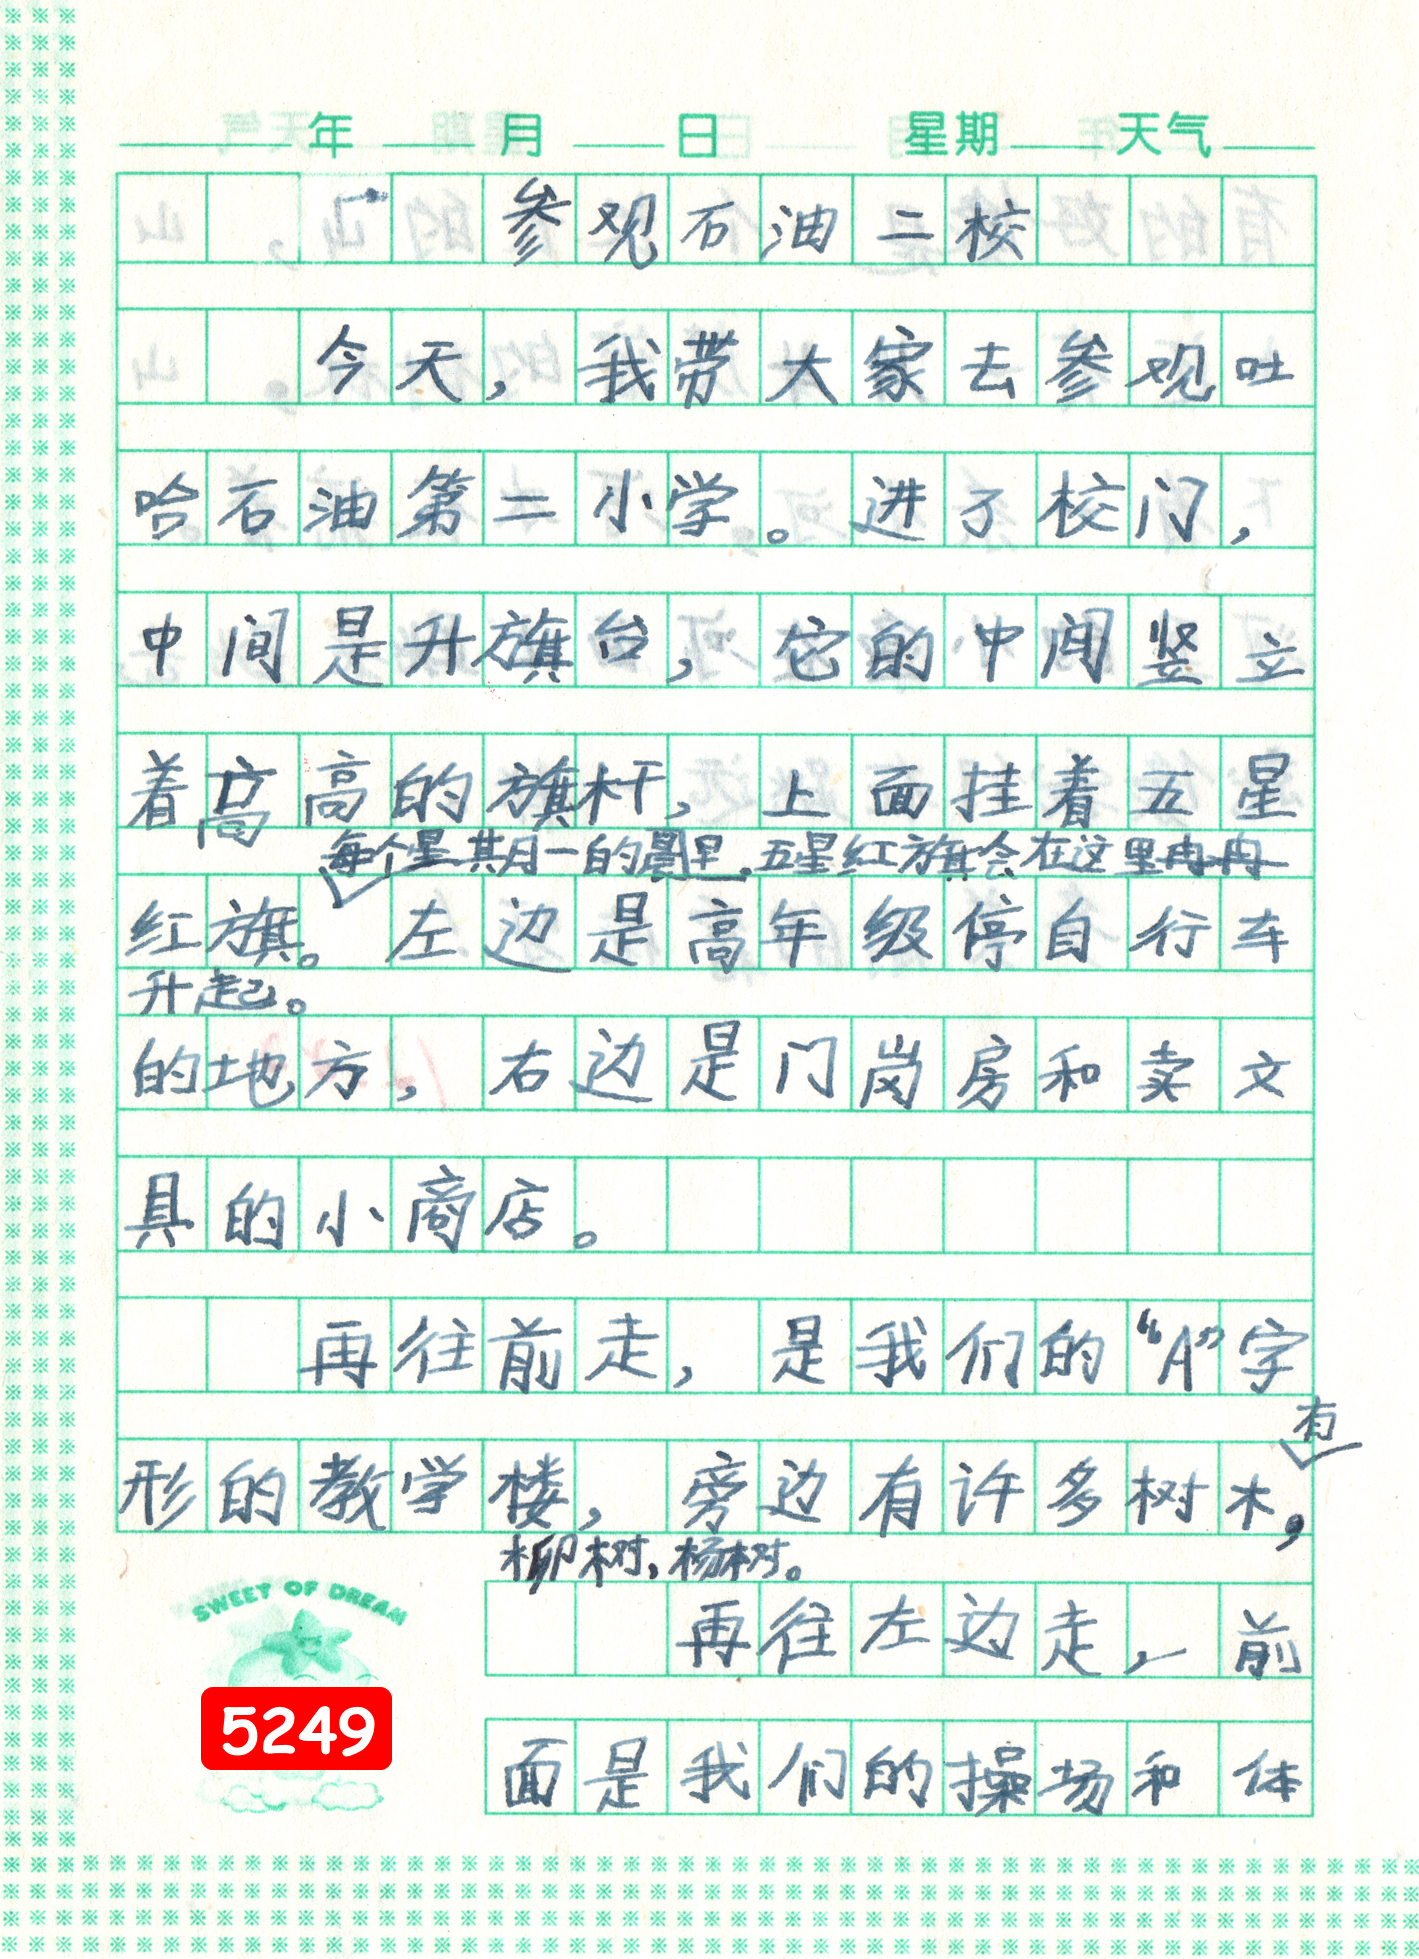 年 月 日 星期 天气
参观石油二校
今天，我带大家去参观吐
哈石油第二小学。进了校门，
中间是升旗台，它的中间竖立
着高高的旗杆，上面挂着五星
每个星其月一的晨早，五星红旗会在这里冉冉
红旗。左边是高年级停自行车
升起。
的地方，右边是门岗房和卖文
具的小商店。
再往前走，是我们的“A”字
有
形的教学楼，旁边有许多树木，
柳树，杨树。
再往左边走，前
面是我们的操场和体
SWEET OF DREAM
5249